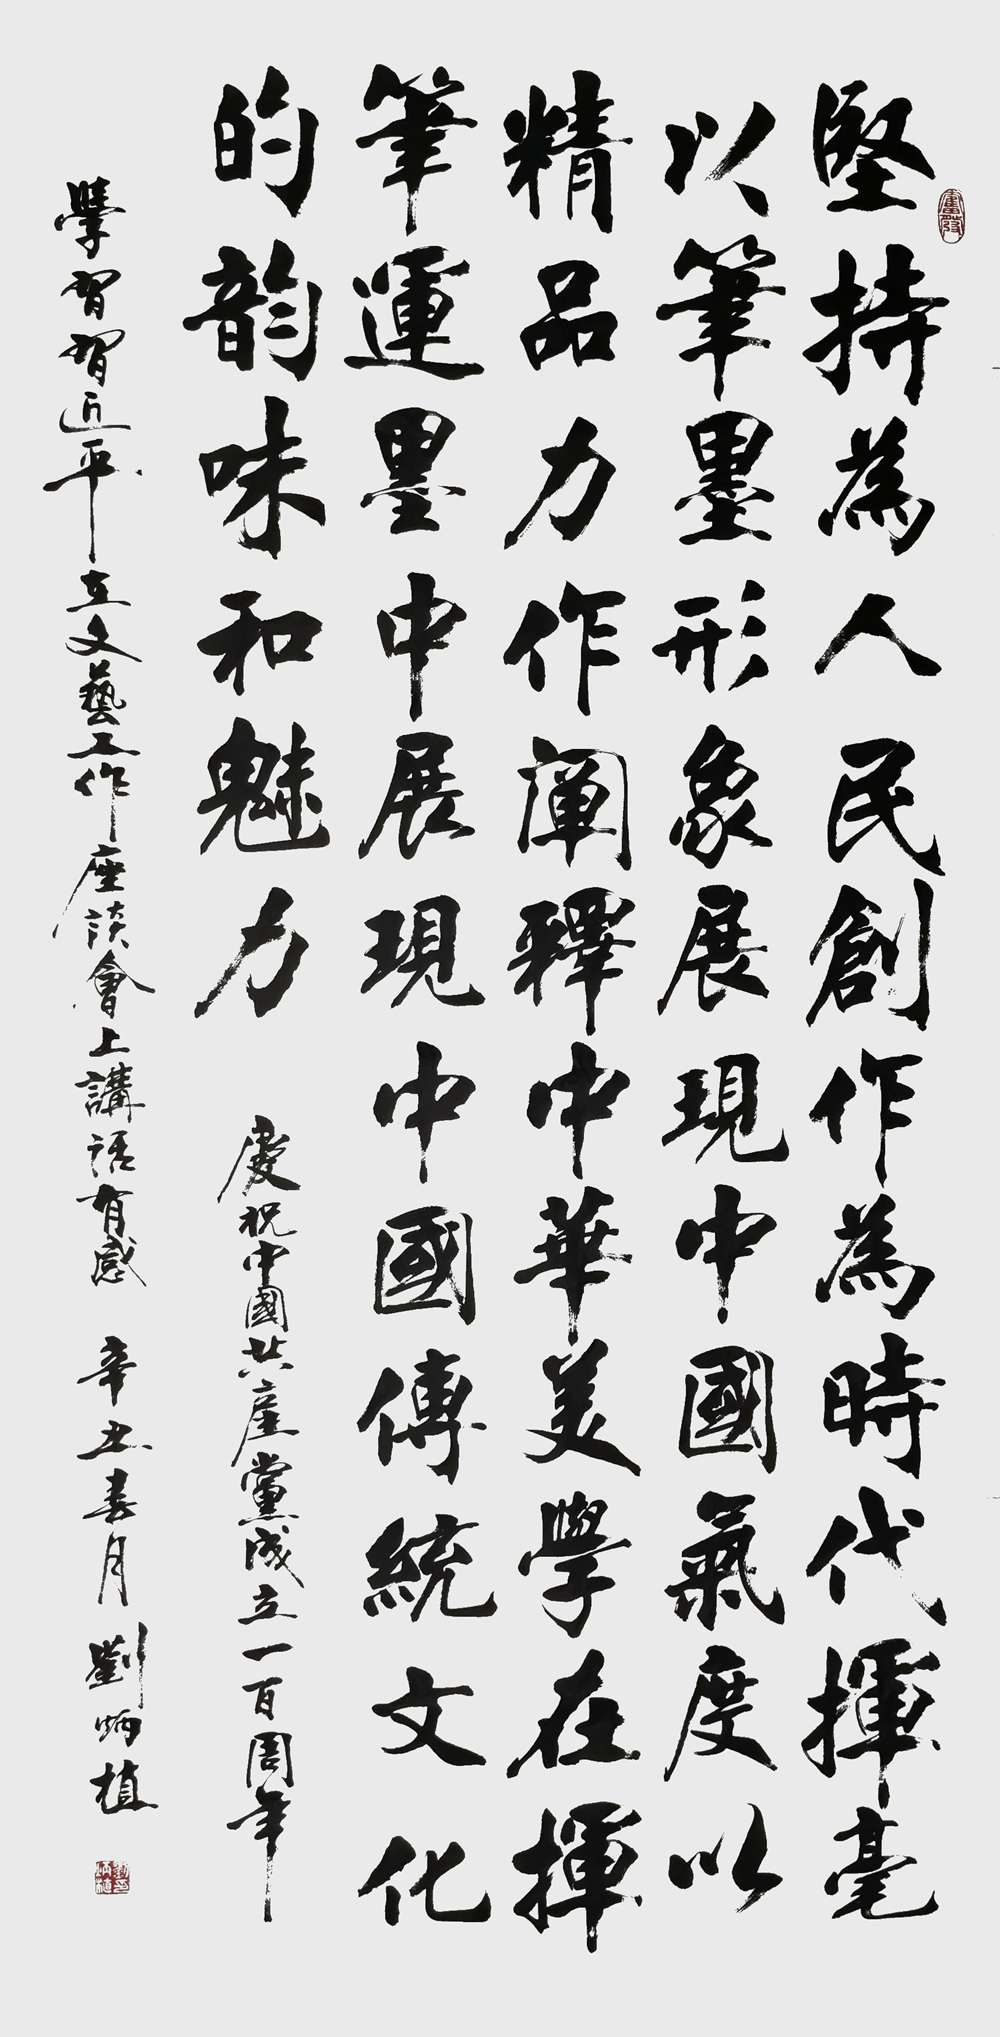 堅持為人民創作為時代揮毫
以筆墨形象展現中國氣度以
精品力作闡釋中華美學在揮
筆運墨中展現中國傳統文化
的韵味和魅力
慶祝中國共產黨成立一百周年
學習習近平在文藝工作座談會上講話有感 辛丑春月 劉炳植